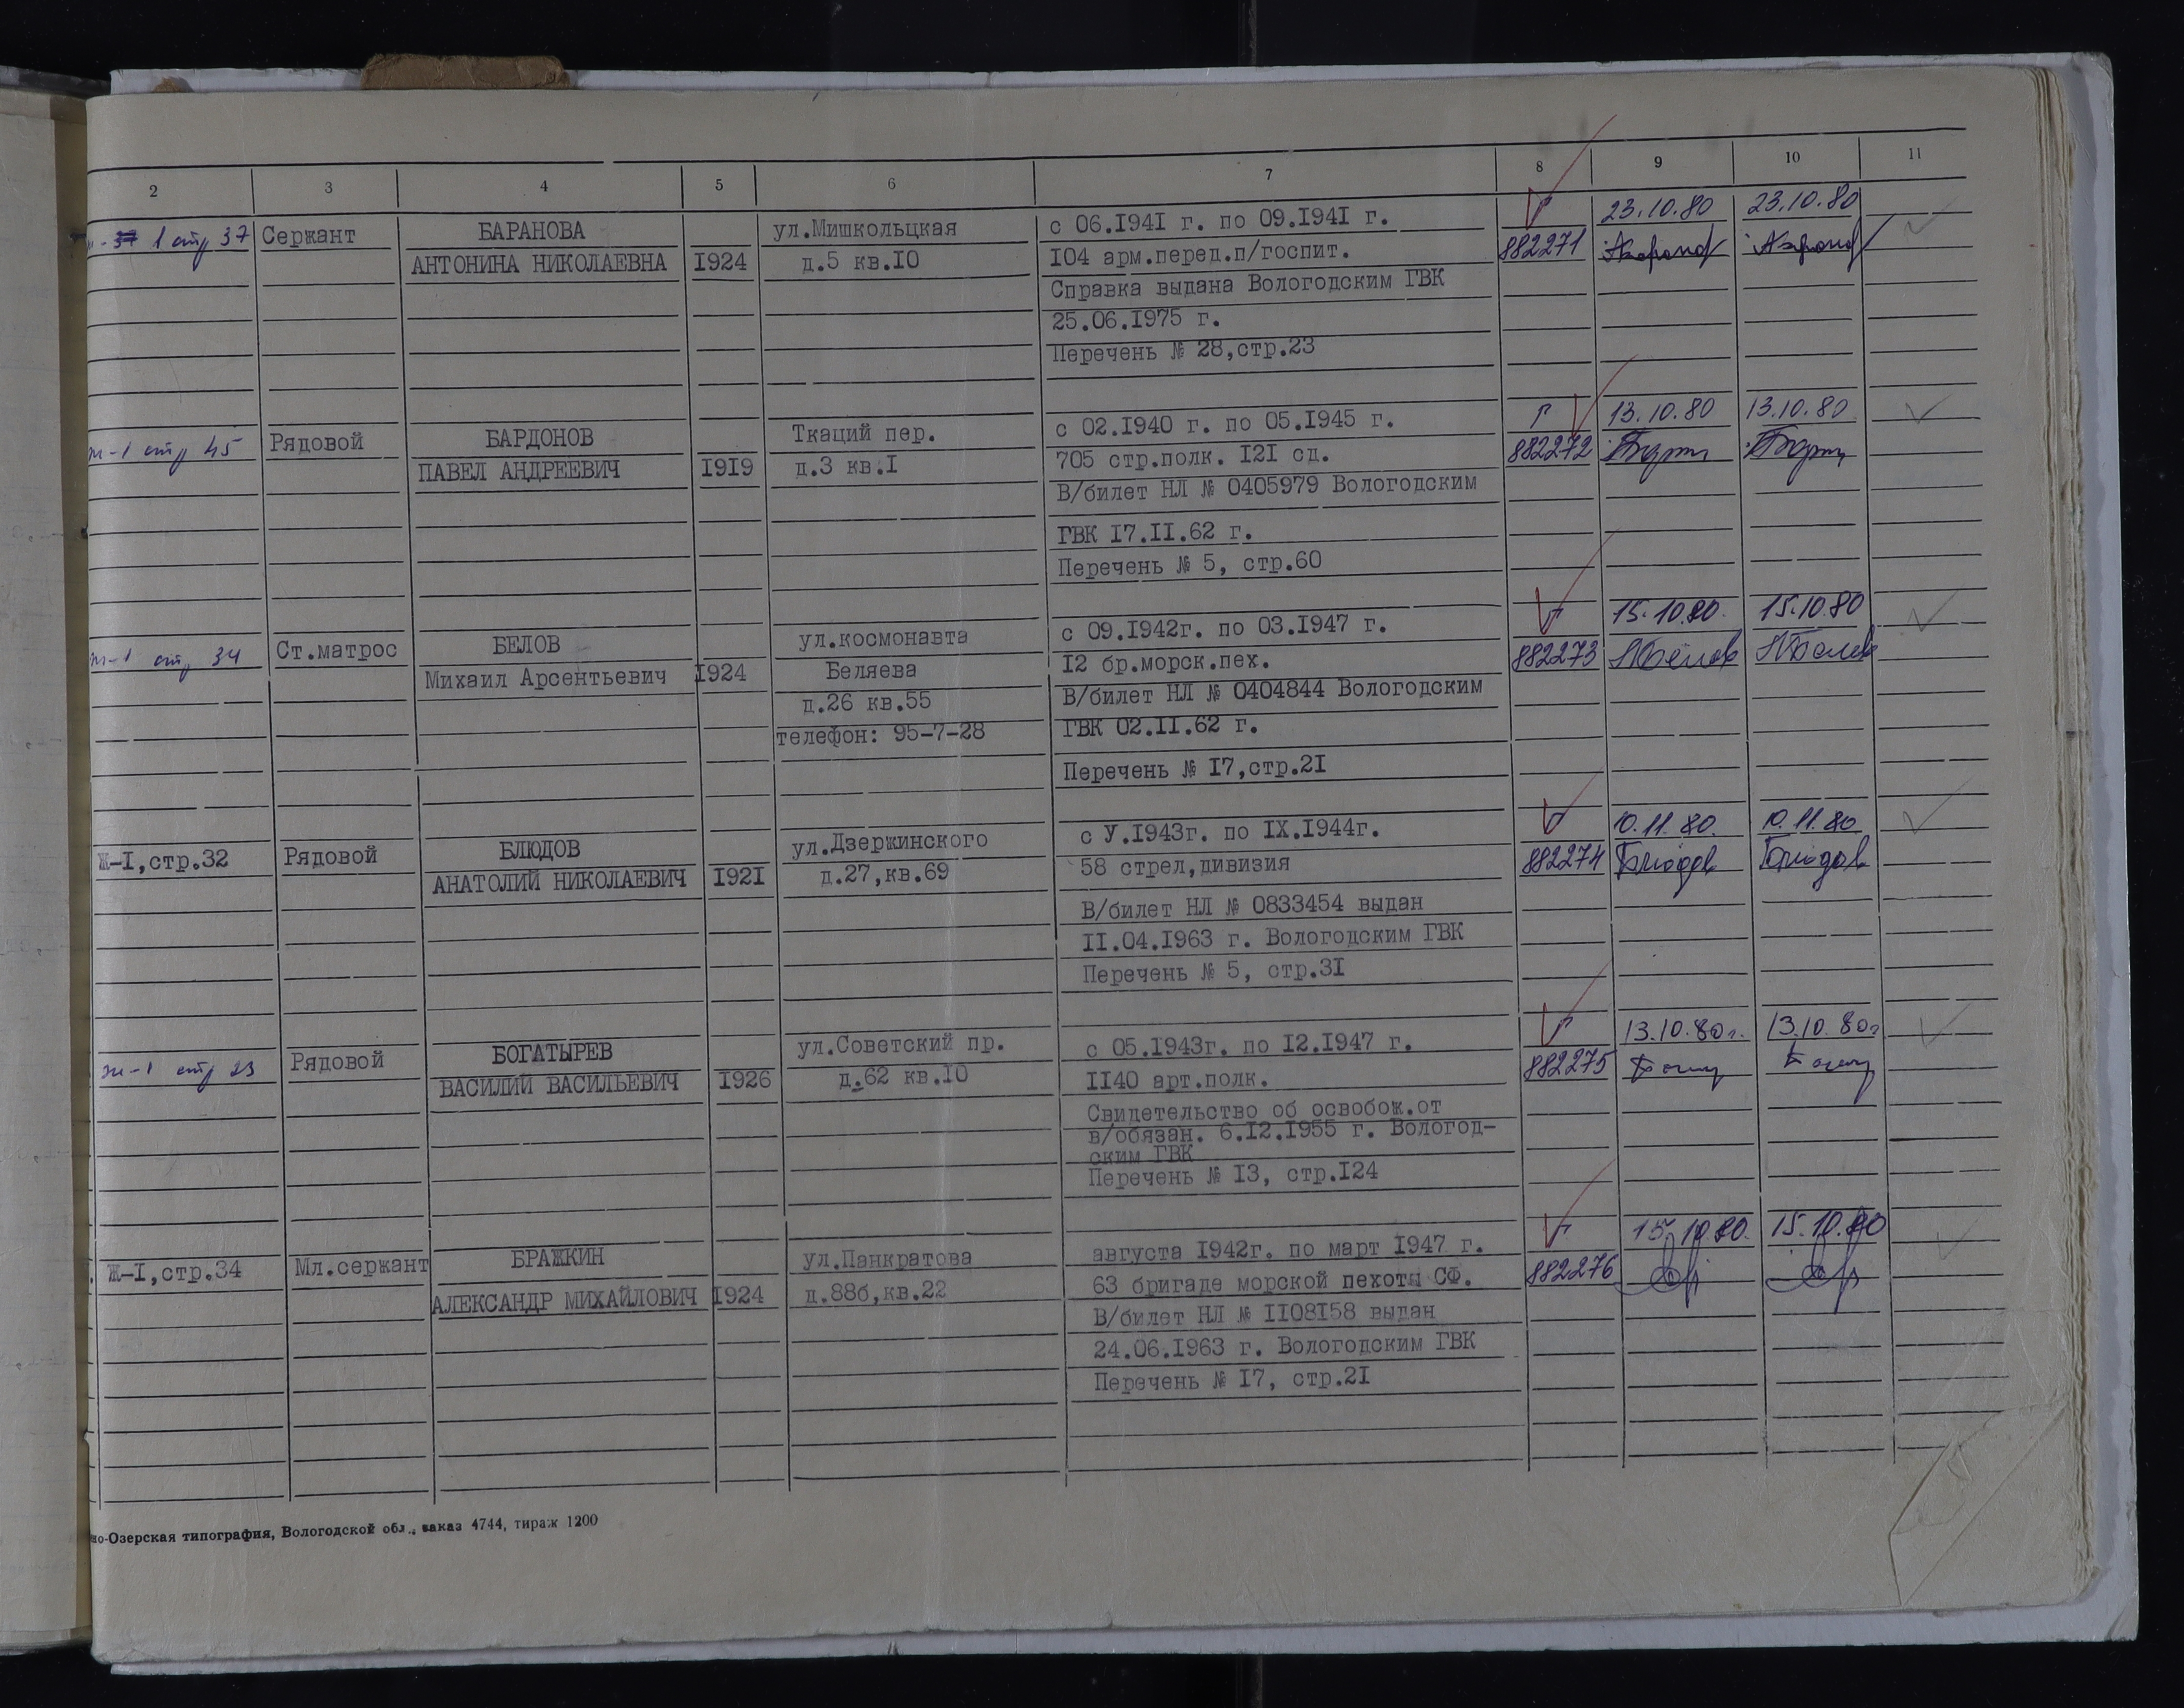 2 3 4 5 6 7 8 9 10 11
1 стр 37 Сержант БАРАНОВА ул.Мишкольцкая с 06.1941 г. по 09.1941 г. Г 23.10.80 23.10.80
АНТОНИНА НИКОЛАЕВНА 1924 д.5 кв.10 104 арм.перед.п/госпит. 882271
Справка выдана Вологодским ГВК
25.06.1975 г.
Перечень № 28,стр.23
ж-1 стр 45 Рядовой БАРДОНОВ Ткаций пер. с 02.1940 г. по 05.1945 г. Г 13.10.80 13.10.80
ПАВЕЛ АНДРЕЕВИЧ 1919 д.3 кв.1 705 стр.полк. 121 сд. 882272
В/билет НЛ № 0405979 Вологодским
ГВК 17.11.62 г.
Перечень № 5, стр.60
ж-1 стр 34 Ст.матрос БЕЛОВ ул.космонавта с 09.1942г. по 03.1947 г. Г 15.10.80. 15.10.80
Михаил Арсентьевич 1924 Беляева 12 бр.морск.пех. 882273 МБелов МБелов
д.26 кв.55 В/билет НЛ № 0404844 Вологодским
телефон: 95-7-28 ГВК 02.11.62 г.
Перечень № 17,стр.21
Ж-1,стр.32 Рядовой БЛЮДОВ ул.Дзержинского с У.1943г. по IX.1944г. Г 10.11.80. 10.11.80
АНАТОЛИЙ НИКОЛАЕВИЧ 1921 д.27,кв.69 58 стрел,дивизия 882274 Блюдов Блюдов
В/билет НЛ № 0833454 выдан
11.04.1963 г. Вологодским ГВК
Перечень № 5, стр.31
ж-1 стр 23 Рядовой БОГАТЫРЕВ ул.Советский пр. с 05.1943г. по 12.1947 г. Г 13.10.80г. 13.10.80г
ВАСИЛИЙ ВАСИЛЬЕВИЧ 1926 д.62 кв.10 1140 арт.полк. 882275
Свидетельство об освобож.от
в/обязан. 6.12.1955 г. Вологод-
ским ГВК
Перечень № 13, стр.124
Ж-1,стр.34 Мл.сержант БРАЖКИН ул.Панкратова августа 1942г. по март 1947 г. Г 15.10.80. 15.10.80
АЛЕКСАНДР МИХАЙЛОВИЧ 1924 д.88б,кв.22 63 бригаде морской пехоты СФ. 882276
В/билет НЛ № 1108158 выдан
24.06.1963 г. Вологодским ГВК
Перечень № 17, стр.21
но-Озерская типография, Вологодской обл., заказ 4744, тираж 1200